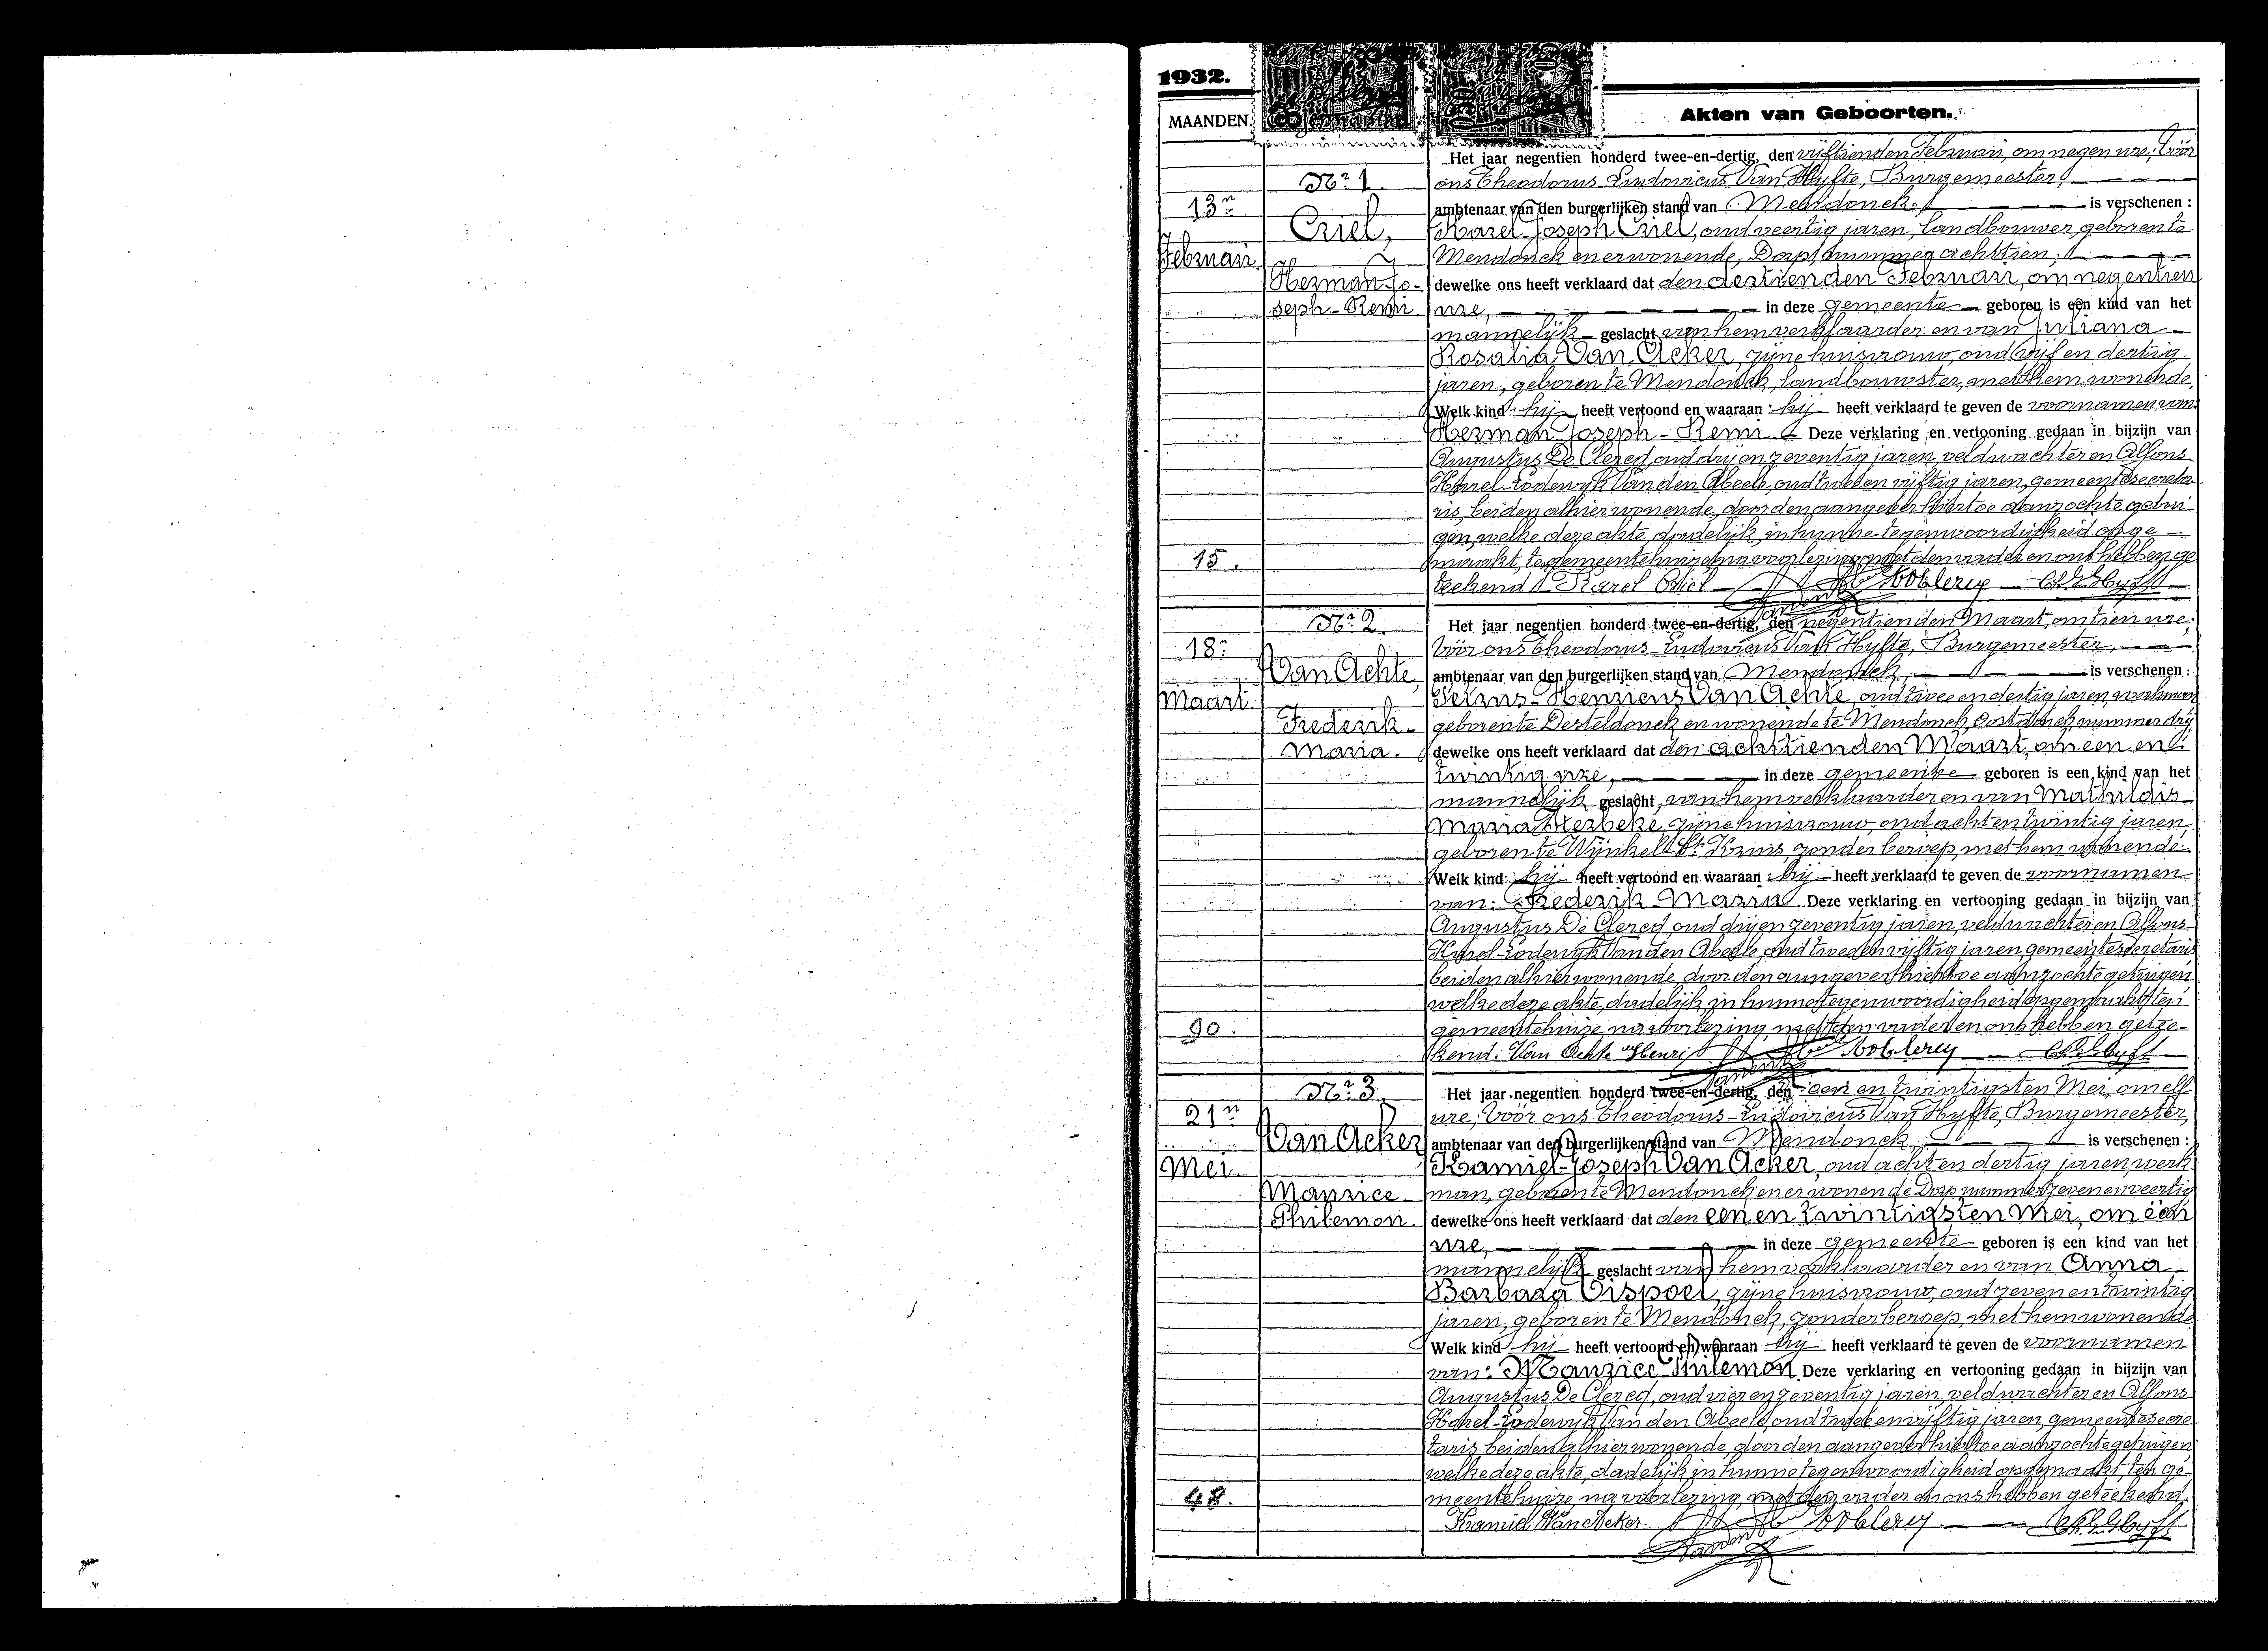 1932.
MAANDEN.
Akten van Geboorten.
Nr. 1.
13n
Februari
Criel,
Herman-Jo-
seph-Remi.
15.
Het jaar negentien honderd twee-en-dertig, den vijftienden Februari, om negen ure; Vóór
ons Theodorus-Ludovicus Van Hyfte, Burgemeester,
ambtenaar van den burgerlijken stand van Mendonck, is verschenen:
Karel-Joseph Criel, oud veertig jaren, landbouwer, geboren te
Mendonck en er wonende, Dorp, nummer achttien;
dewelke ons heeft verklaard dat den dertienden Februari, om negentien
ure, in deze gemeente geboren is een kind van het
mannelijk geslacht van hem verklaarder en van Juliana
Rosalia Van Acker, zijne huisvrouw, oud vijf en dertig
jaren, geboren te Mendonck, landbouwster, met hem wonende,
Welk kind hij heeft vertoond en waaraan hij heeft verklaard te geven de voornamen van:
Herman-Joseph-Remi. Deze verklaring en vertooning gedaan in bijzijn van
Augustus De Clercq, oud drij en zeventig jaren, veldwachter en Alfons
Karel-Lodewijk Van den Abeele, oud twee en vijftig jaren, gemeentesecreta-
ris, beiden alhier wonende, door den aangever hiertoe aanzochte getui-
gen, welke deze akte, dadelijk in hunne tegenwoordigheid opge-
maakt, ten gemeentehuize, na voorlezing, met den vader en ons hebben ge-
teekend. Karel Criel
Nr. 2.
18n
Maart
Van Achte,
Frederik-
Maria.
90.
Het jaar negentien honderd twee-en-dertig, den negentienden Maart, om tien ure;
Vóór ons Theodorus-Ludovicus Van Hyfte, Burgemeester,
ambtenaar van den burgerlijken stand van Mendonck, is verschenen:
Petrus-Henricus Van Achte, oud twee en dertig jaren, werkman
geboren te Desteldonck en wonende te Mendonck, Oostdonck, nummer drij
dewelke ons heeft verklaard dat den achttienden Maart, om een en
twintig ure, in deze gemeente geboren is een kind van het
mannelijk geslacht, van hem verklaarder en van Mathildis
Maria Sterbeke, zijne huisvrouw, oud acht en twintig jaren,
geboren te Wynkel St Kruis, zonder beroep, met hem wonende.
Welk kind hij heeft vertoond en waaraan hij heeft verklaard te geven de voornamen
van: Frederik-Maria. Deze verklaring en vertooning gedaan in bijzijn van
Augustus De Clercq, oud drij en zeventig jaren, veldwachter en Alfons-
Karel-Lodewijk Van den Abeele, oud twee en vijftig jaren, gemeentesecretaris
beiden alhier wonende, door den aangever hiertoe aanzochte getuigen
welke deze akte, dadelijk in hunne tegenwoordigheid opgemaakt, ten
gemeentehuize, na voorlezing, met den vader en ons hebben getee-
kend. Van Achte Henri
Nr. 3.
21n
Mei
Van Acker
Maurice
Philemon.
48.
Het jaar negentien honderd twee-en-dertig, den een en twintigsten Mei, om elf
ure; Vóór ons Theodorus-Ludovicus Van Hyfte, Burgemeester,
ambtenaar van den burgerlijken stand van Mendonck, is verschenen:
Kamiel-Joseph Van Acker, oud acht en dertig jaren, werk-
man, geboren te Mendonck en er wonende Dorp nummer zeven en veertig
dewelke ons heeft verklaard dat den een en twintigsten Mei, om één
ure, in deze gemeente geboren is een kind van het
mannelijk geslacht van hem verklaarder en van Anna
Barbara Cispoel, zijne huisvrouw, oud zeven en twintig
jaren, geboren te Mendonck, zonder beroep, met hem wonende
Welk kind hij heeft vertoond en waaraan hij heeft verklaard te geven de voornamen
van: Maurice-Philemon. Deze verklaring en vertooning gedaan in bijzijn van
Augustus De Clercq, oud vier en zeventig jaren, veldwachter en Alfons
Karel-Lodewijk Van den Abeele, oud twee en vijftig jaren, gemeentesecre-
taris, beiden alhier wonende, door den aangever hiertoe aanzochte getuigen
welke deze akte, dadelijk in hunne tegenwoordigheid opgemaakt, ten ge-
meentehuize, na voorlezing, met den vader en ons hebben geteekend.
Kamiel Van Acker.